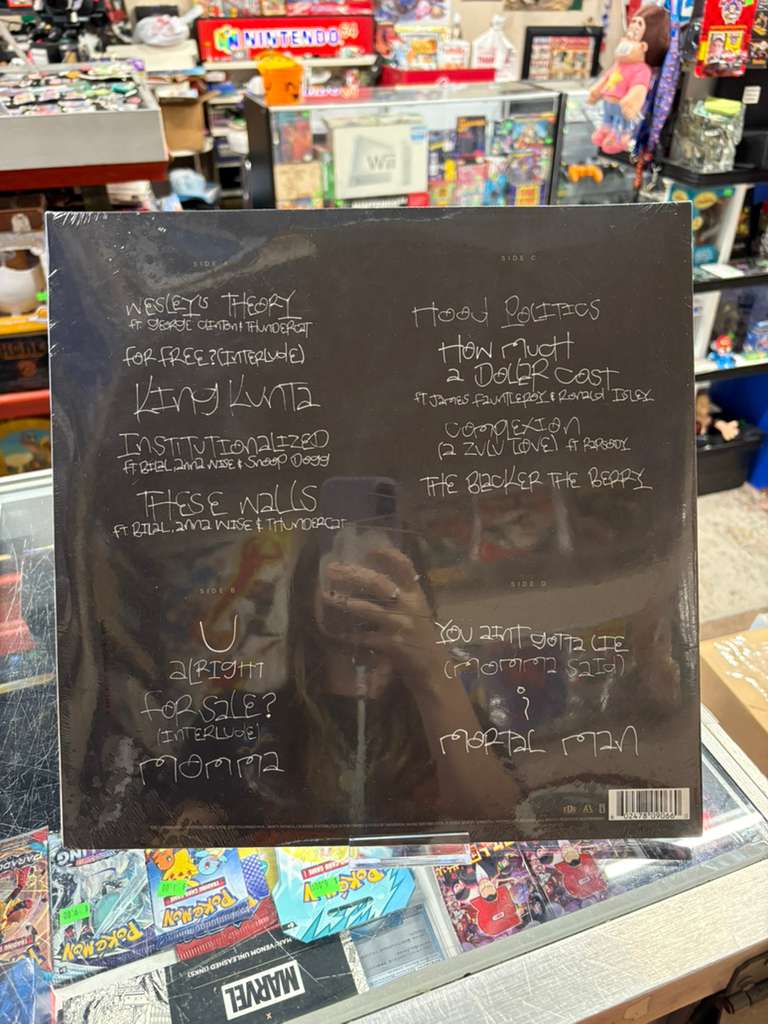 NINTENDO 64
Wii
SIDE A
WESLEY'S THEORY
FT GEORGE CLINTON & THUNDERCAT
FOR FREE? (INTERLUDE)
KING KUNTA
INSTITUTIONALIZED
FT BILAL, ANNA WISE & SNOOP DOGG
THESE WALLS
FT BILAL, ANNA WISE & THUNDERCAT
SIDE B
U
ALRIGHT
FOR SALE?
(INTERLUDE)
MOMMA
SIDE C
HOOD POLITICS
HOW MUCH
A DOLLAR COST
FT JAMES FAUNTLEROY & RONALD ISLEY
COMPLEXION
(A ZULU LOVE) FT RAPSODY
THE BLACKER THE BERRY
SIDE D
YOU AINT GOTTA LIE
(MOMMA SAID)
i
MORTAL MAN
POKÉMON
POKÉMON
TRADING CARD GAME
POKÉMON
MARVEL